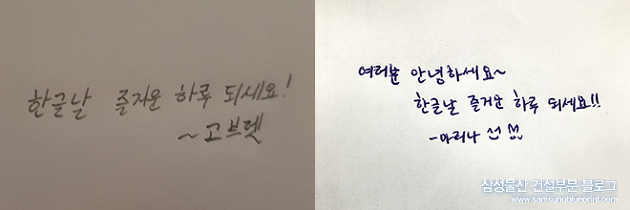 한글날 즐거운 하루 되세요!
~고브렛
여러분 안녕하세요~
한글날 즐거운 하루 되세요!!
-마리나
삼성물산 건설부문 블로그
www.samsungblueprint.com